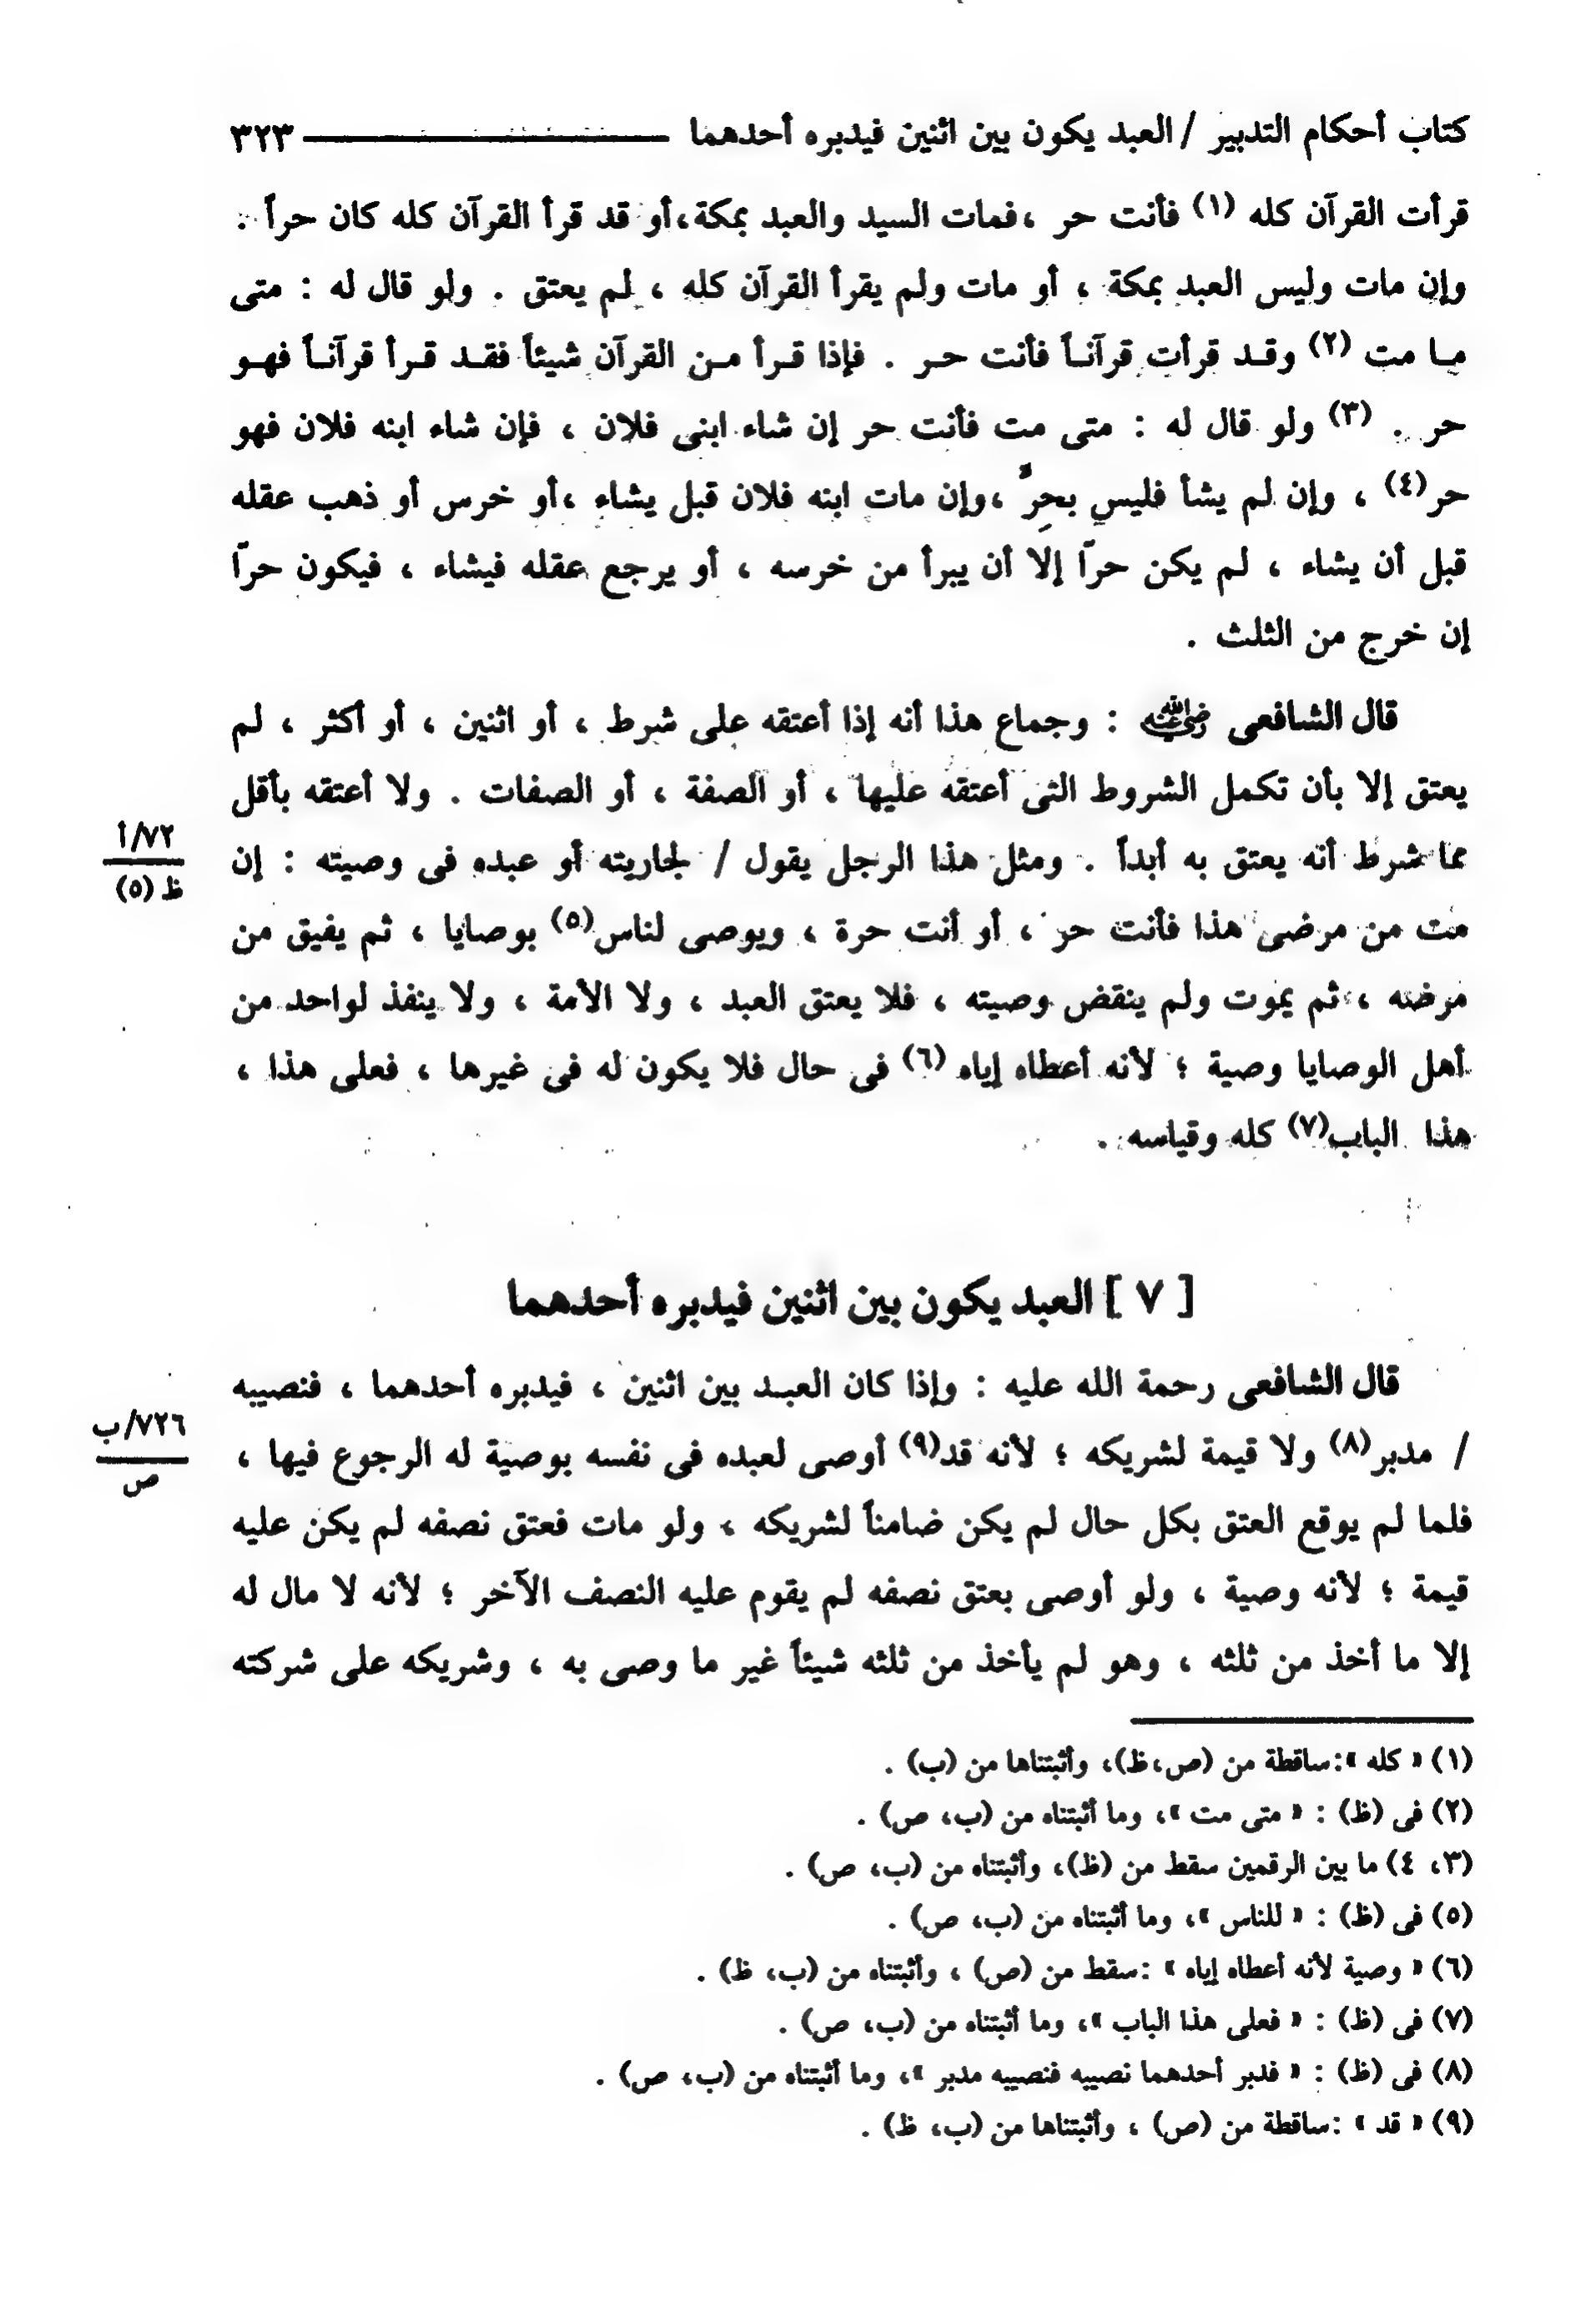 كتاب أحكام التدبير / العبد يكون بين اثنين فيدبره أحدهما ٣٢٣
قرأت القرآن كله (١) فأنت حر ، فمات السيد والعبد بمكة ، أو قد قرأ القرآن كله كان حراً .
وإن مات وليس العبد بمكة ، أو مات ولم يقرأ القرآن كله ، لم يعتق . ولو قال له : متى
مـا مت (٢) وقـد قرأت قرآنـاً فأنت حـر . فإذا قـرأ مـن القرآن شيئاً فقـد قـرأ قرآنـاً فهـو
حر . (٣) ولو قال له : متى مت فأنت حر إن شاء ابنى فلان ، فإن شاء ابنه فلان فهو
حر(٤) ، وإن لم يشأ فليس بحرٍّ ، وإن مات ابنه فلان قبل يشاء ، أو خرس أو ذهب عقله
قبل أن يشاء ، لم يكن حرّا إلا أن يبرأ من خرسه ، أو يرجع عقله فيشاء ، فيكون حرّا
إن خرج من الثلث .
قال الشافعى رضي الله عنه : وجماع هذا أنه إذا أعتقه على شرط ، أو اثنين ، أو أكثر ، لم
يعتق إلا بأن تكمل الشروط التى أعتقه عليها ، أو الصفة ، أو الصفات . ولا أعتقه بأقل
مما شرط أنه يعتق به أبداً . ومثل هذا الرجل يقول / لجاريته أو عبده فى وصيته : إن
٧٢/أ
ظ (٥)
مت من مرضى هذا فأنت حر ، أو أنت حرة ، ويوصى لناس(٥) بوصايا ، ثم يفيق من
مرضه ، ثم يموت ولم ينقض وصيته ، فلا يعتق العبد ، ولا الأمة ، ولا ينفذ لواحد من
أهل الوصايا وصية ؛ لأنه أعطاه إياه (٦) فى حال فلا يكون له فى غيرها ، فعلى هذا ،
هذا الباب(٧) كله وقياسه .
[ ٧ ] العبد يكون بين اثنين فيدبره أحدهما
قال الشافعى رحمة الله عليه : وإذا كان العبـد بين اثنين ، فيدبره أحدهما ، فنصيبه
/ مدبر(٨) ولا قيمة لشريكه ؛ لأنه قد(٩) أوصى لعبده فى نفسه بوصية له الرجوع فيها ،
٧٢٦/ب
ص
فلما لم يوقع العتق بكل حال لم يكن ضامناً لشريكه ، ولو مات فعتق نصفه لم يكن عليه
قيمة ؛ لأنه وصية ، ولو أوصى بعتق نصفه لم يقوم عليه النصف الآخر ؛ لأنه لا مال له
إلا ما أخذ من ثلثه ، وهو لم يأخذ من ثلثه شيئاً غير ما وصى به ، وشريكه على شركته
(١) « كله »: ساقطة من (ص،ظ)، وأثبتناها من (ب) .
(٢) فى (ظ) : « متى مت »، وما أثبتناه من (ب، ص) .
(٣، ٤) ما بين الرقمين سقط من (ظ)، وأثبتناه من (ب، ص) .
(٥) فى (ظ) : « للناس »، وما أثبتناه من (ب، ص) .
(٦) « وصية لأنه أعطاه إياه » :سقط من (ص) ، وأثبتناه من (ب، ظ) .
(٧) فى (ظ) : « فعلى هذا الباب »، وما أثبتناه من (ب، ص) .
(٨) فى (ظ) : « فدبر أحدهما نصيبه فنصيبه مدبر »، وما أثبتناه من (ب، ص) .
(٩) « قد » :ساقطة من (ص) ، وأثبتناها من (ب، ظ) .